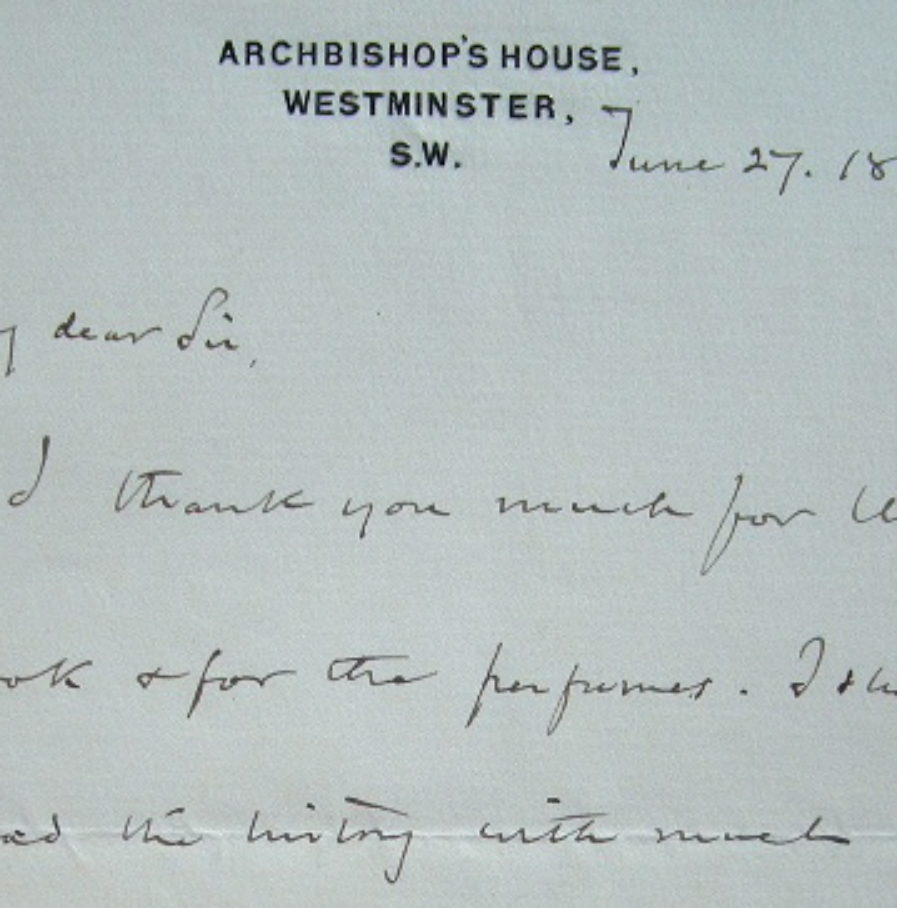 ARCHBISHOP'S HOUSE,
WESTMINSTER,
S.W.
June 27. 18
dear Sir,
I thank you much for
& for the perfumes. I
the history with much